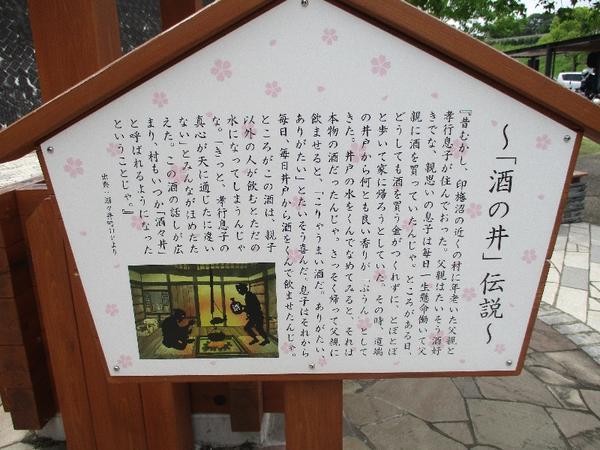 ～「酒の井」伝説～
『昔むかし、印旛沼の近くの村に年老いた父親と
孝行息子が住んでおった。父親はたいそう酒好
きでな、親思いの息子は毎日一生懸命働いて父
親に酒を買っていたんじゃ。ところがある日、
どうしても酒を買う金がつくれずに、とぼとぼ
と歩いて家に帰ろうとしていた。その時、道端
の井戸から何とも良い香りが、ぷうんとして
きた。井戸の水をくんでなめてみると、それは
本物の酒だったんじゃ。さっそく帰って父親に
飲ませると、「こりゃうまい酒だ。ありがたい、
ありがたい」とたいそう喜んだ。息子はそれから
毎日、毎日井戸から酒をくんで飲ませたんじゃ。
ところがこの酒は、親子
以外の人が飲むとただの
水になってしまうんじゃ
な。「きっと、孝行息子の
真心が天に通じたに違い
ない」とみんながほめたた
えた。この酒の話しが広
まり、村もいつか「酒々井」
と呼ばれるようになった
ということじゃ。』